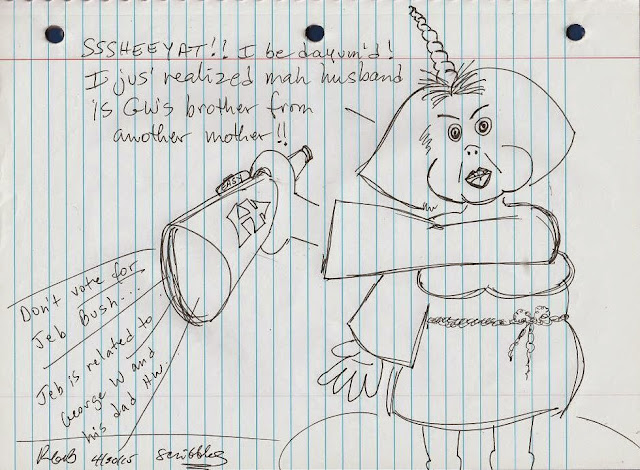 SSSHEEYAT!! I be dayum'd!
I jus' realized mah husband
is GW's brother from
another mother!!
EASY
H
Don't vote for
Jeb Bush...
Jeb is related to
George W and
his dad HW...
4/30/15